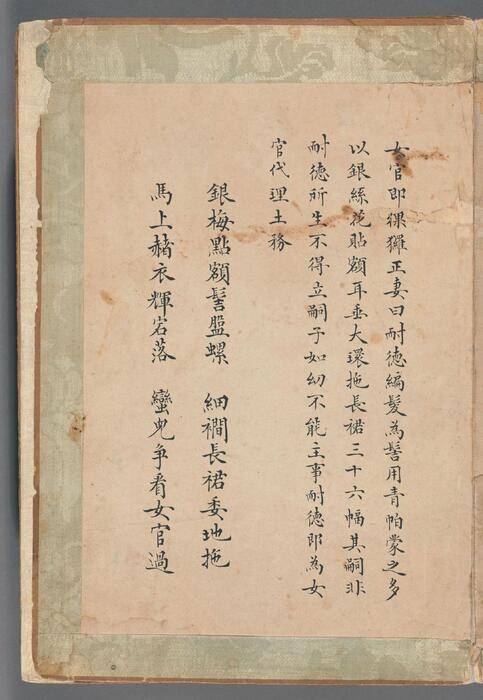 女官即猓玀正妻曰耐德編髮為髻用青帕蒙之多
以銀絲花貼額耳垂大環拖長裙三十六幅其嗣非
耐德所生不得立嗣子如幼不能主事耐德即為女
官代理土務
銀梅點額髻盤螺　細襇長裙委地拖
馬上赭衣輝宕落　蠻兒爭看女官過